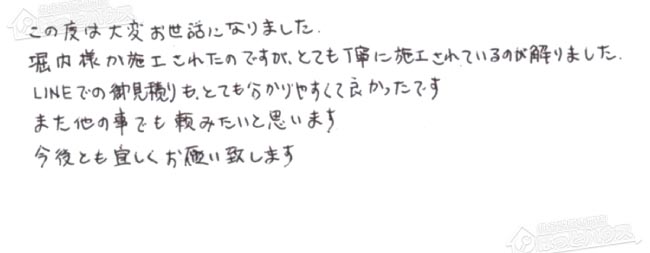 この度は大変お世話になりました.
堀内様が施工されたのですが、とても丁寧に施工されているのが解りました.
LINEでの御見積りも、とても分かりやすくて良かったです
また他の事でも頼みたいと思います
今後とも宜しくお願い致します